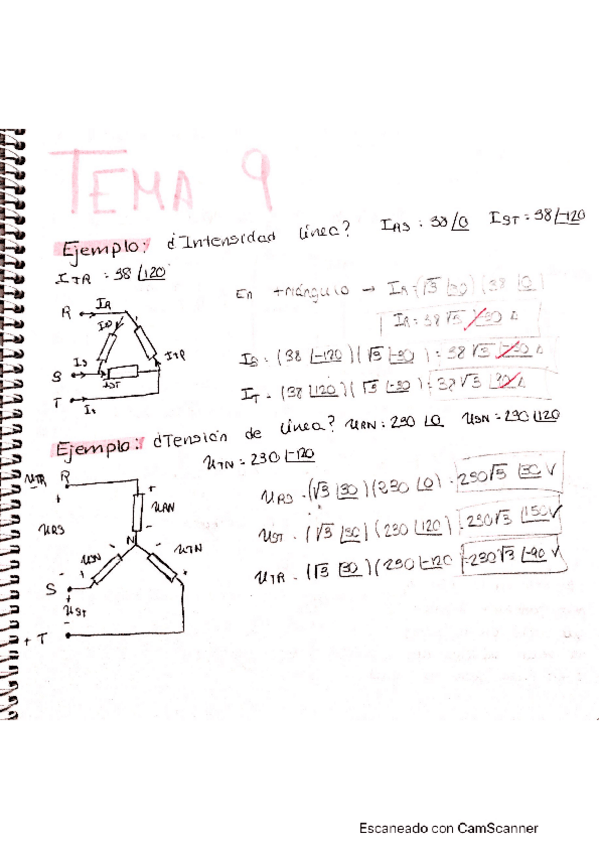 TEMA 9
Ejemplo: ¿Intensidad línea? I_RS : 38 /0 I_ST = 38 /-120
I_TR : 38 /120
R I_R
S I_S I_ST I_TR
T I_t
En triángulo → I_R = (√3 /-30) (38 /0)
I_R = 38√3 /-30 A
I_S = (38 /-120) (√3 /-30) = 38√3
I_T = (38 /120) (√3 /-30) = 38√3
Ejemplo: ¿Tensión de línea? U_RN = 230 /0 U_SN = 230 /120
U_TN = 230 /-120
U_TR R
+ +
U_RN
U_RS
N
U_SN U_TN
S
U_ST
+ T
U_RS = (√3 /30) (230 /0) = 230√3 /30 V
U_ST = (√3 /30) (230 /120) = 230√3 /150 V
U_TR = (√3 /30) (230 /-120) = 230√3 /-90 V
Escaneado con CamScanner